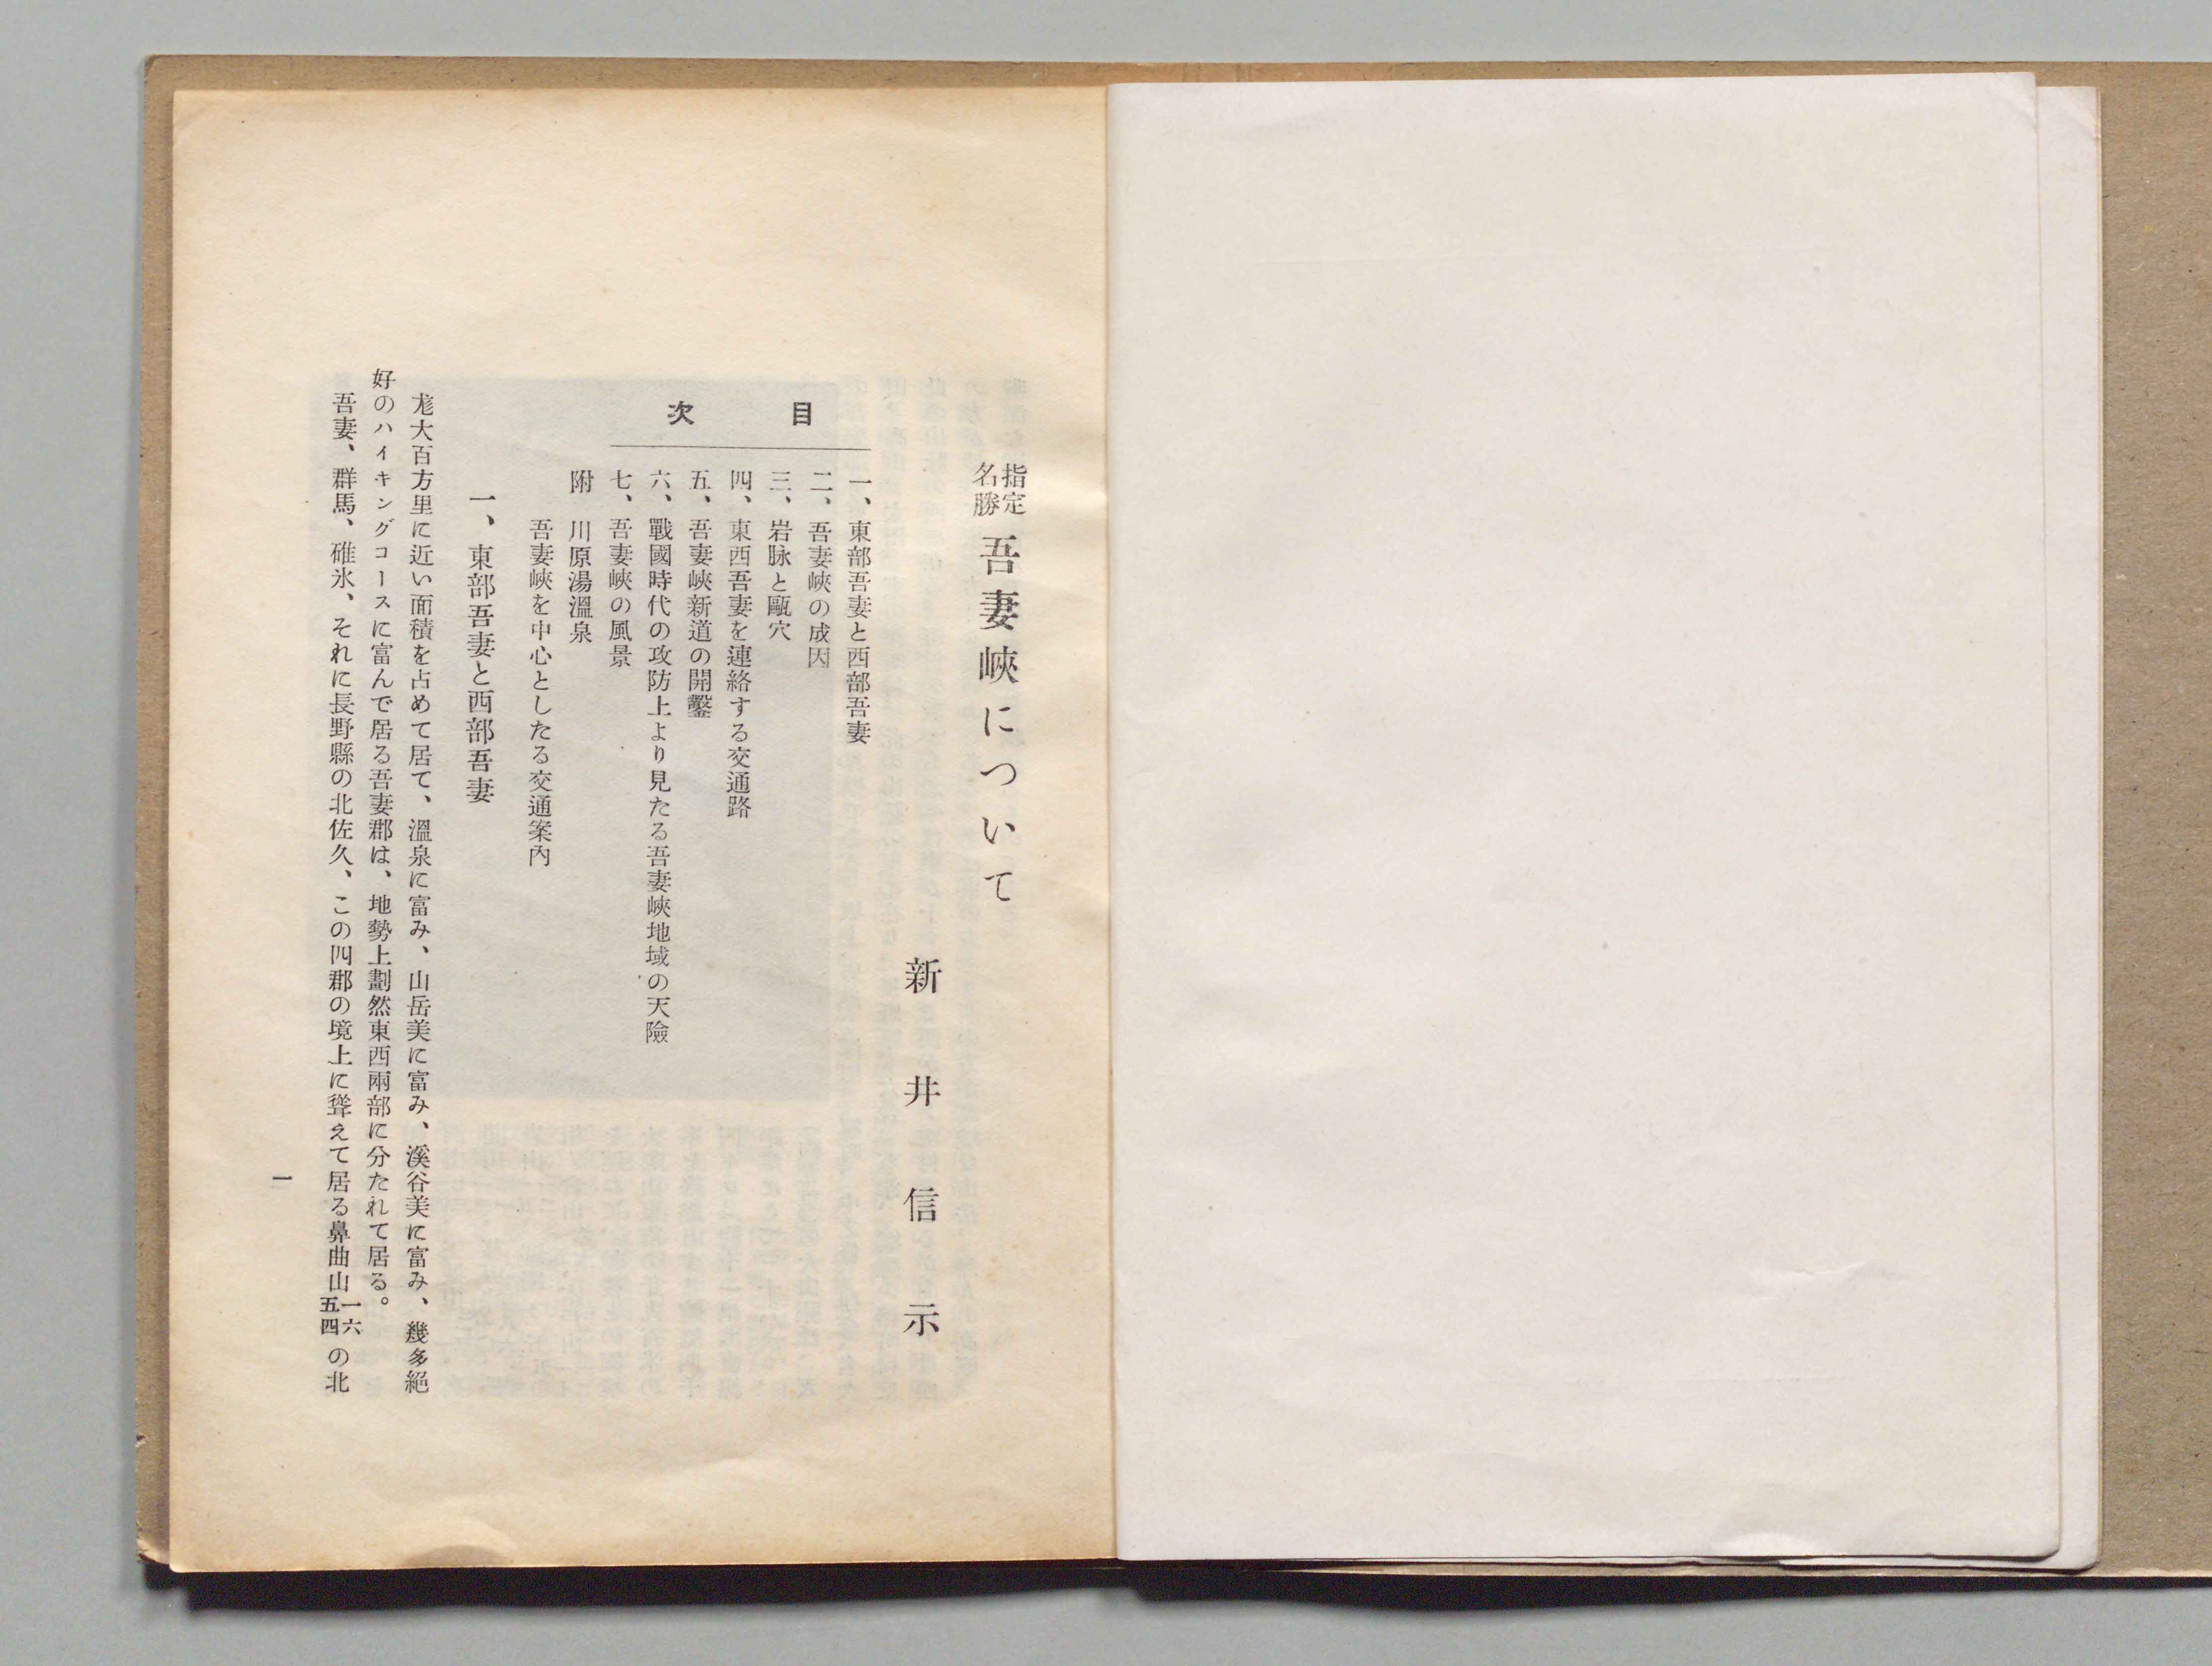 指定
名勝
吾妻峽について
新井信示
目次
一、東部吾妻と西部吾妻
二、吾妻峽の成因
三、岩脉と甌穴
四、東西吾妻を連絡する交通路
五、吾妻峽新道の開鑿
六、戰國時代の攻防上より見たる吾妻峽地域の天險
七、吾妻峽の風景
附　川原湯溫泉
吾妻峽を中心としたる交通案內
一、東部吾妻と西部吾妻
尨大百方里に近い面積を占めて居て、溫泉に富み、山岳美に富み、溪谷美に富み、幾多絕
好のハイキングコースに富んで居る吾妻郡は、地勢上劃然東西兩部に分たれて居る。
吾妻、群馬、碓氷、それに長野縣の北佐久、この四郡の境上に聳えて居る鼻曲山一六五四の北
一